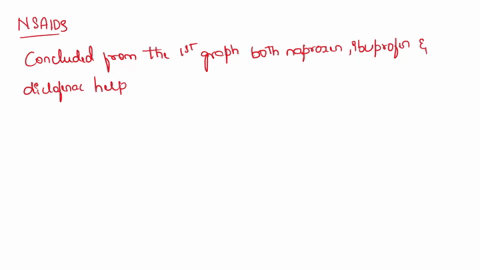 NSAIDS
Concluded from the 1ST graph both naproxen, ibuprofen &
diclofenac help